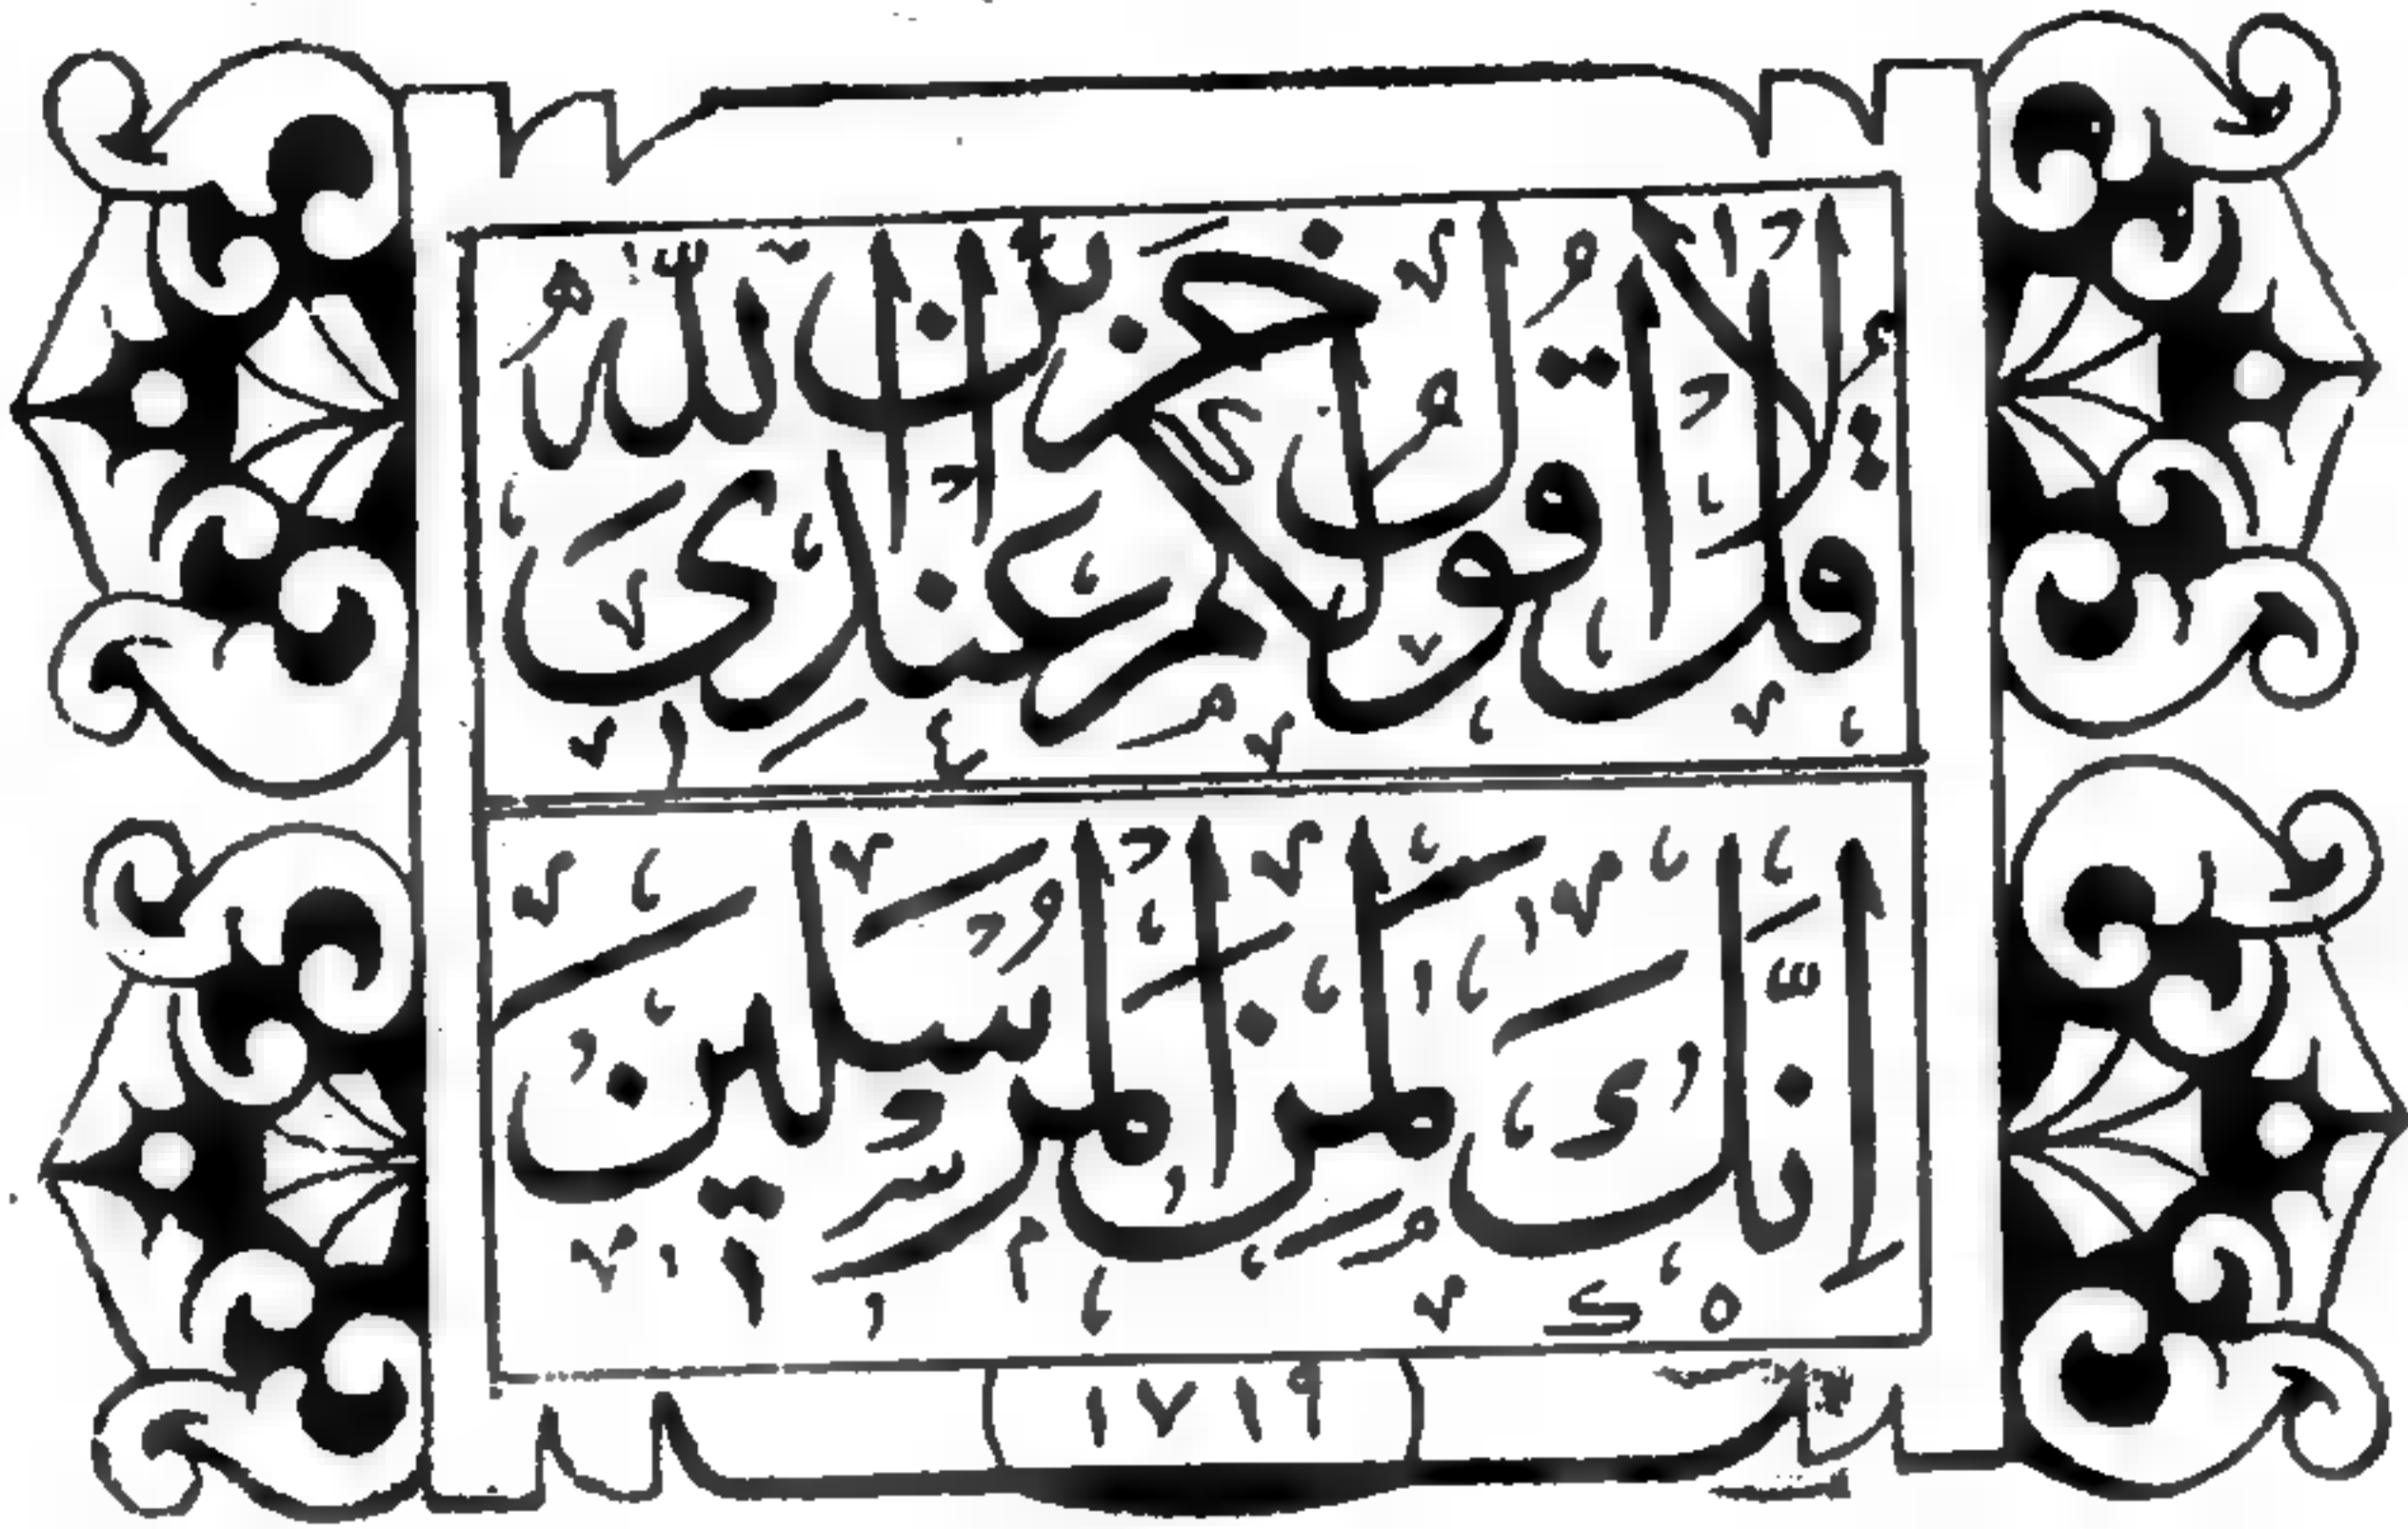 قل لا اقول لكم عندى خزائن الله
إنك لمن المرسلين
١٧١٩